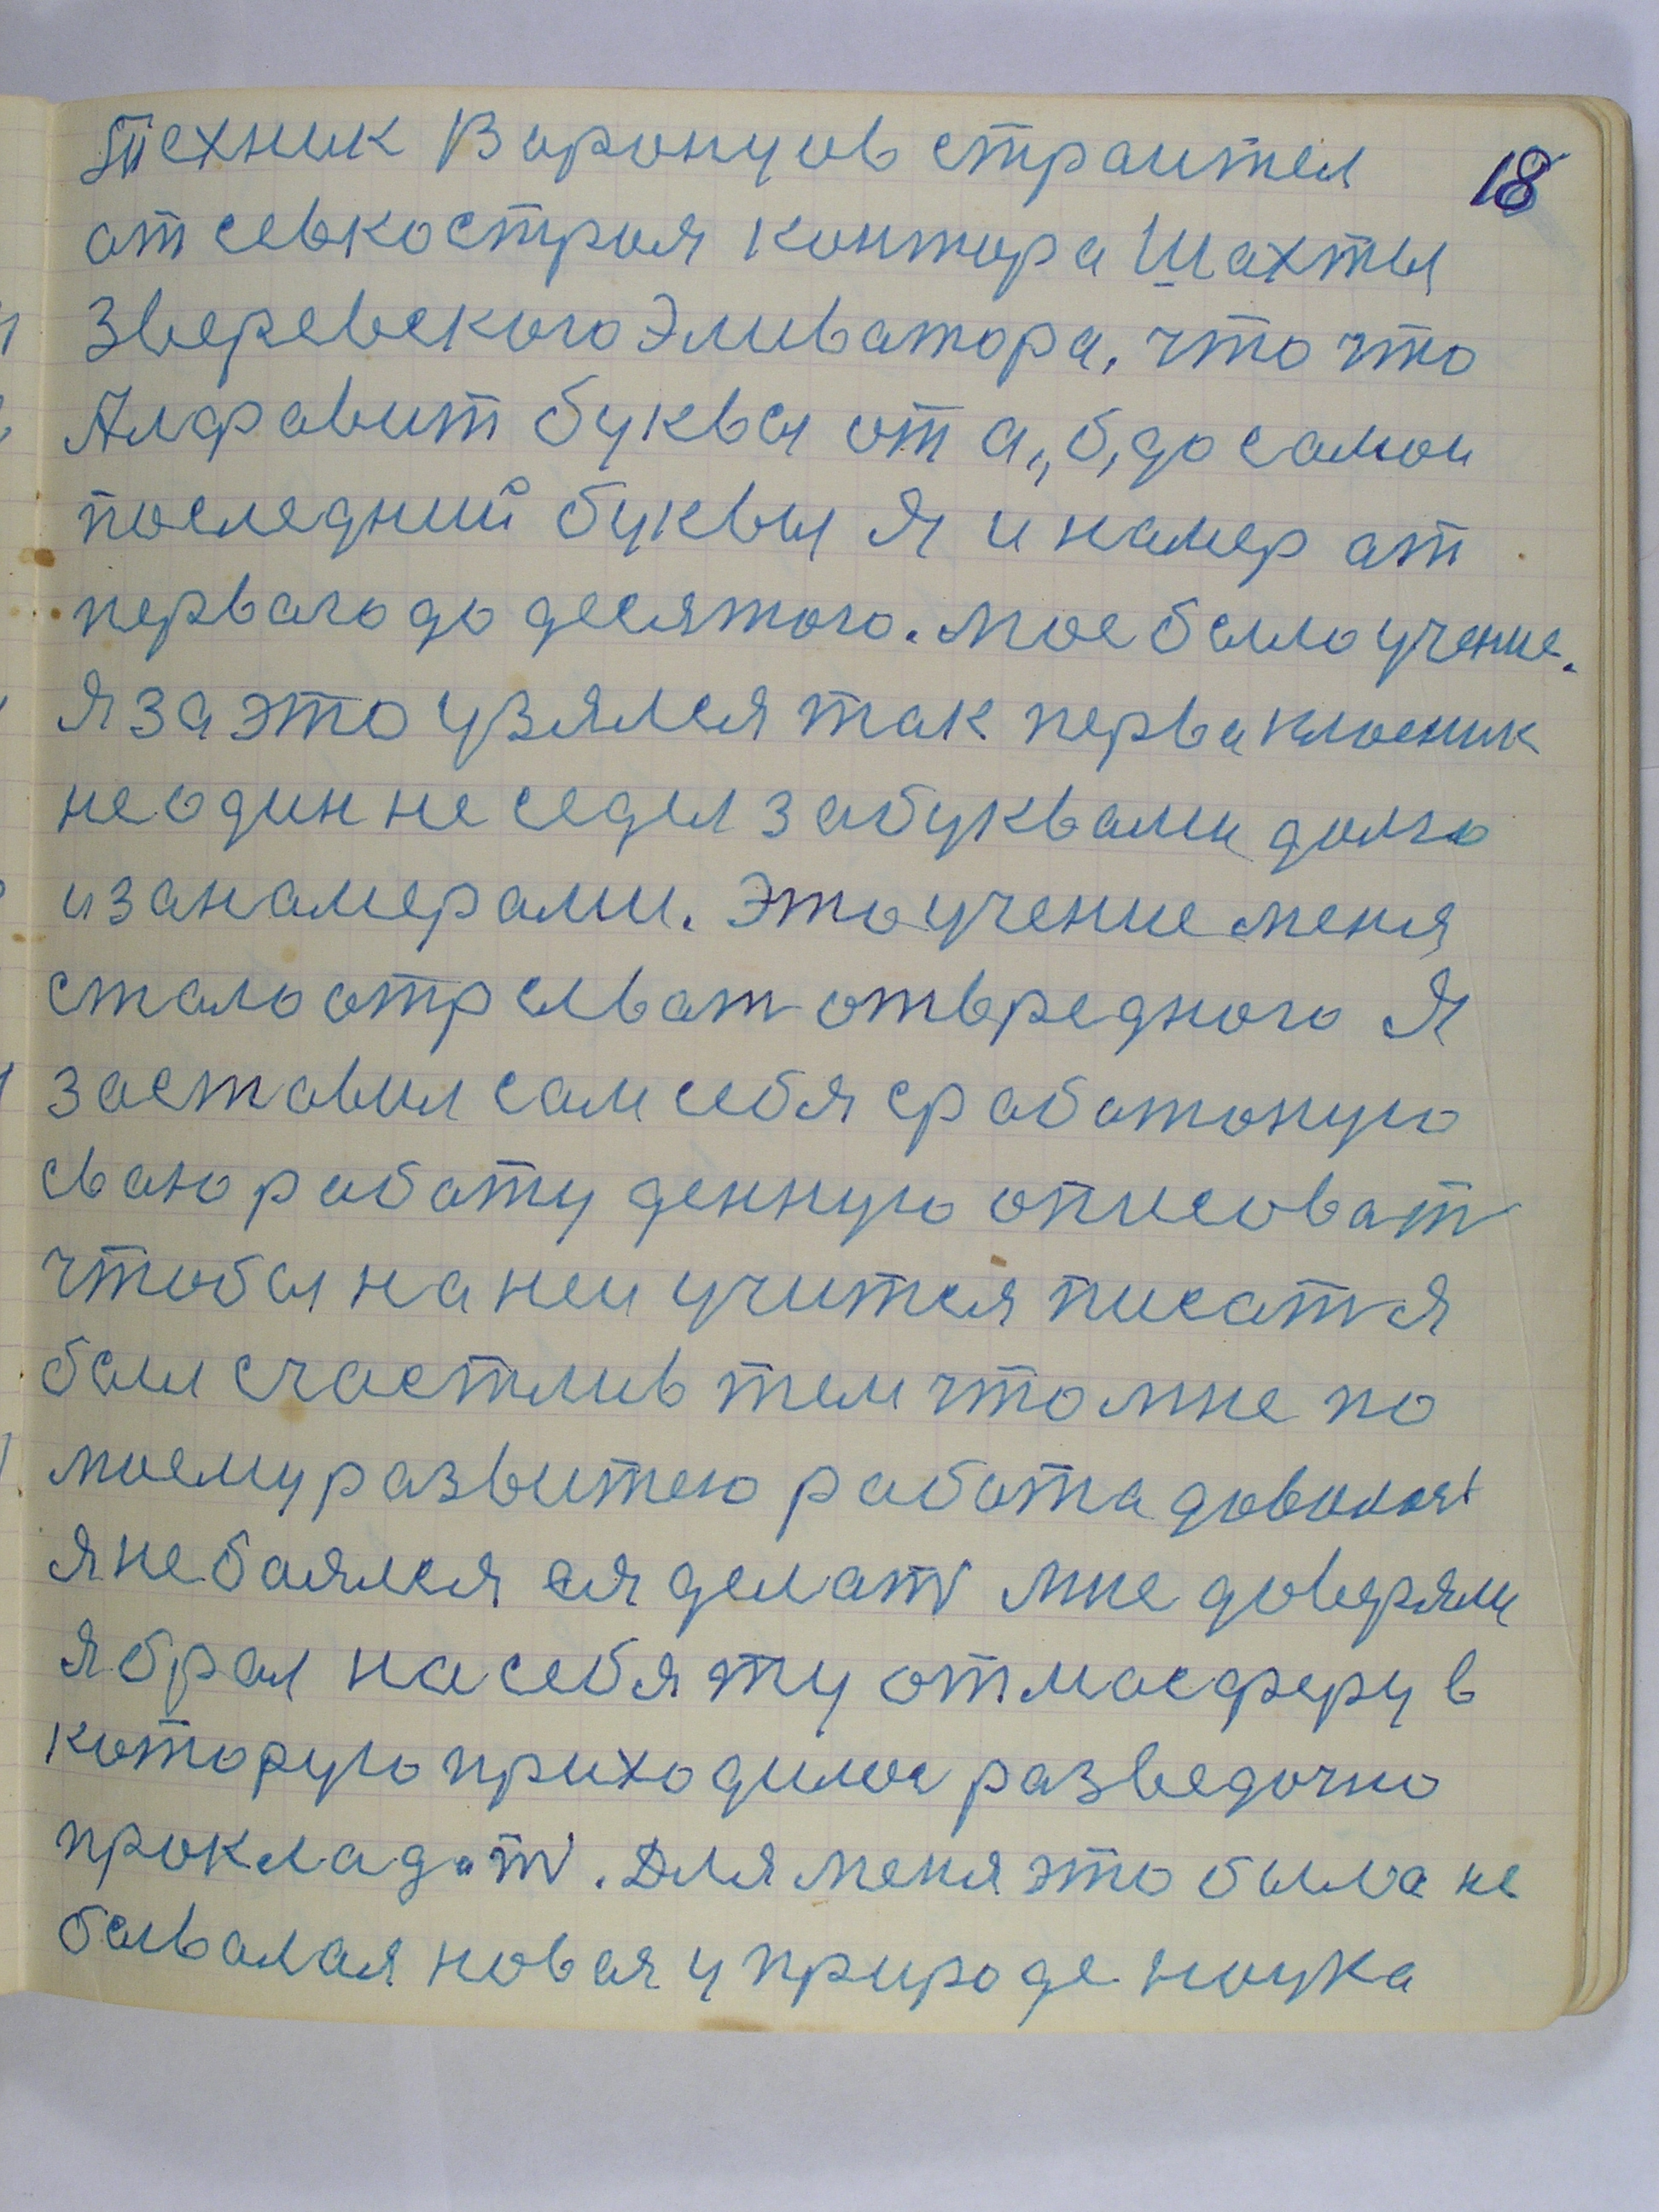 Техник Воронцов страител
18
от севкостроя контора Шахты
Зверевского Эливатора, что что
Алфавит буквы от а,, б, до самои
последний буквы Я и намер от
первого до десятого. Мое было учение.
Я за это узялся так перва класник
не один не седел за буквами долго
и за намерами. Это учение меня
стало отрывать от вредного Я
заставил сам себя сработоную
сваю работу денную описоват
чтобы на неи учится писать я
был счастлив тем что мне по
моему развитею работа
я не боялся ея делать мне доверяли
я брал на себя эту отмасферу в
которую приходилос разведочно
прокладать. Для меня это была не
бывалая новая у природе наука